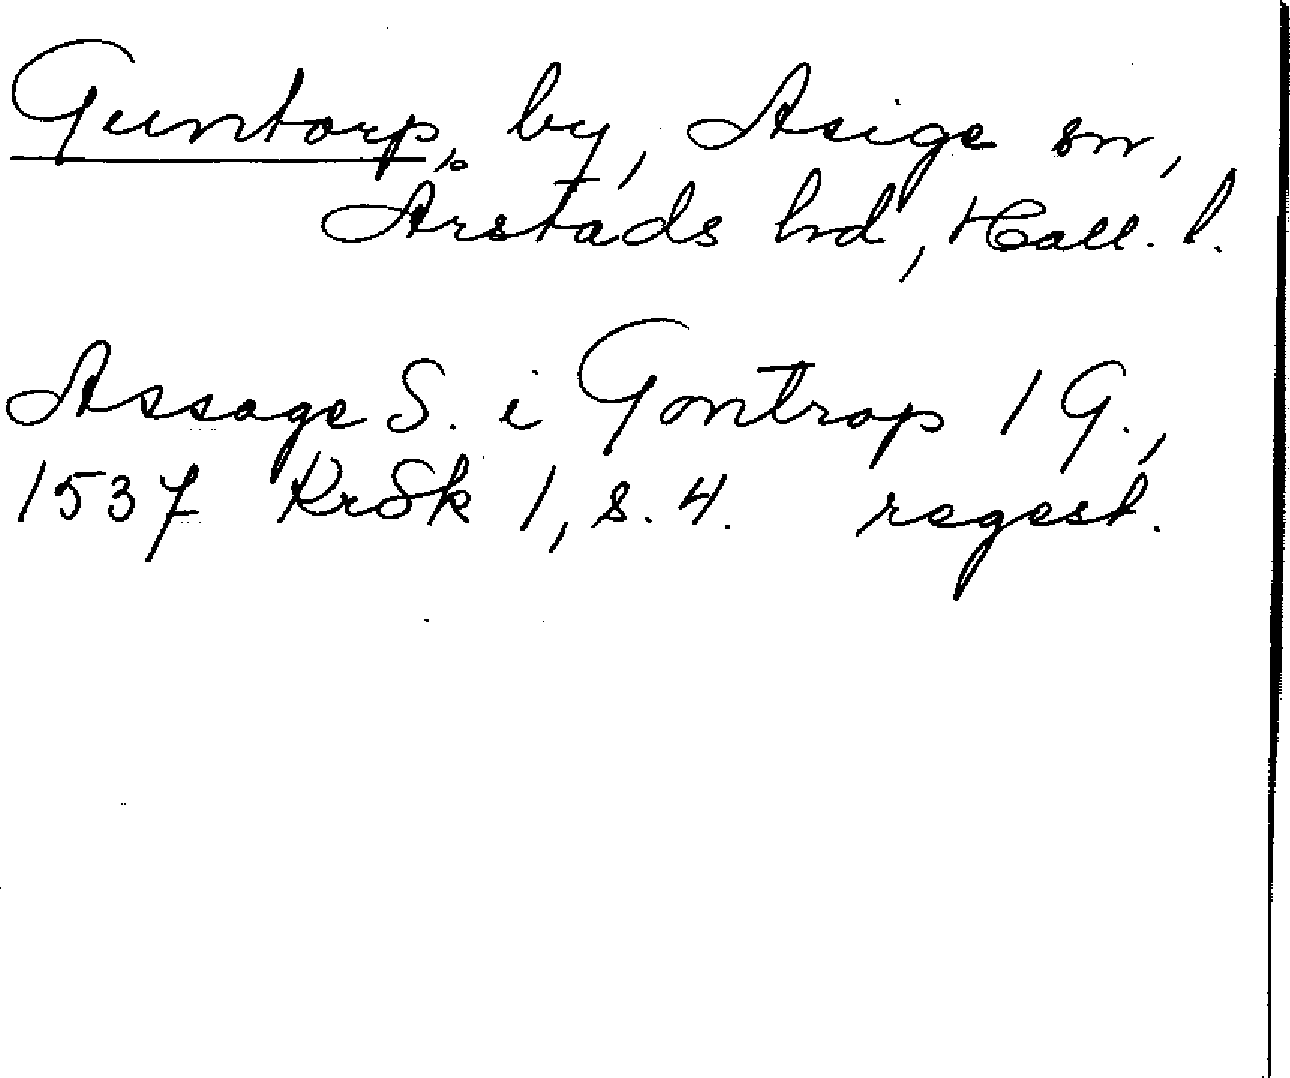 Guntorp, by, Asige sn,
Årstads hd, Hall. l.
Assage S. i Gontrap 1 G.,
1537 KrSk 1, s. 4. regest.